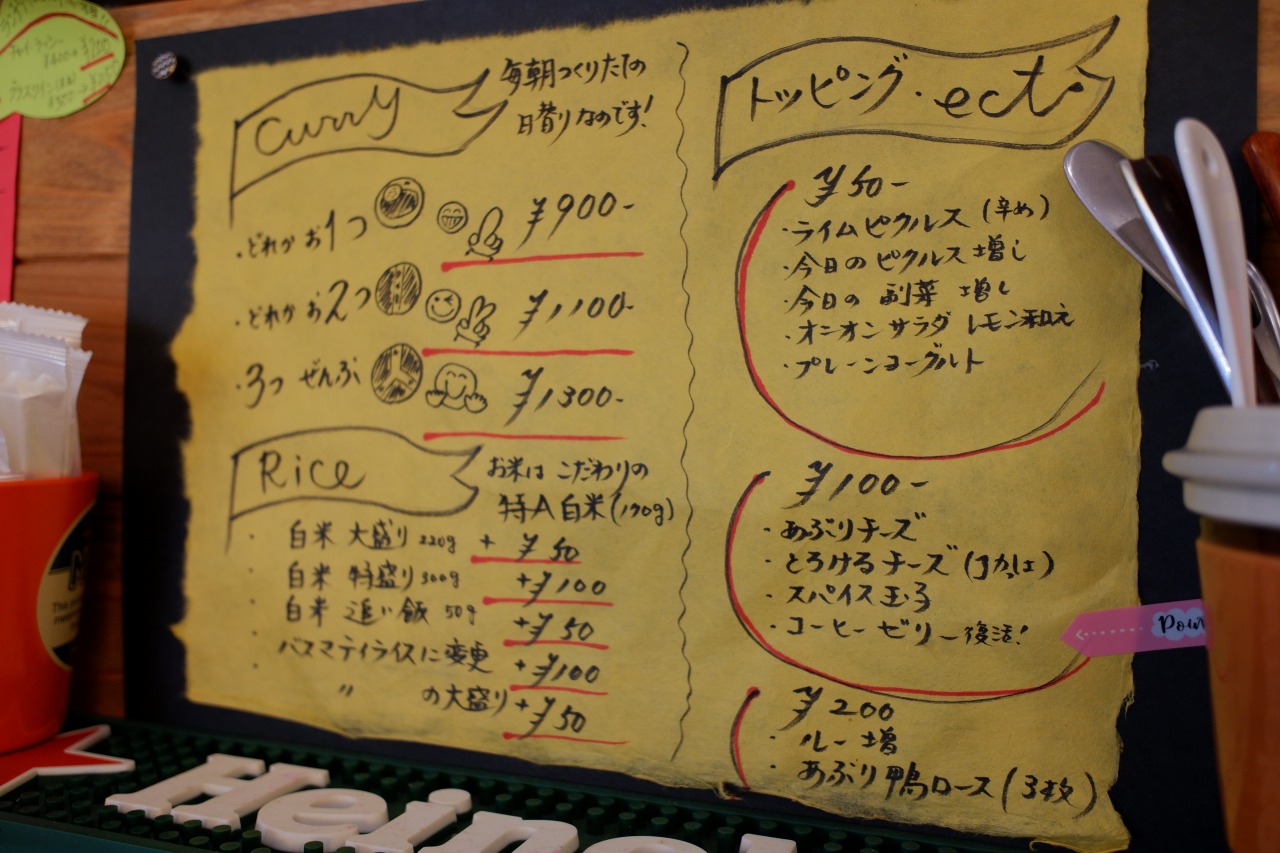 Curry
毎朝つくりたての
日替りなのです!
・どれか お1つ ¥900-
・どれか お2つ ¥1,100-
・3つ ぜんぶ ¥1300-
Rice
お米は こだわりの
特A白米(190g)
・ 白米 大盛り 220g + ¥50
・ 白米 特盛り 300g +¥100
・ 白米 追い飯 50g +¥50
・ バスマティライスに変更 +¥100
・ 〃 の大盛り +¥50
トッピング・ect・
¥50-
・ライムピクルス (辛め)
・今日のピクルス増し
・今日の 副菜 増し
・オニオンサラダ レモン和え
・プレーンヨーグルト
¥100-
・あぶりチーズ
・とろけるチーズ
・スパイス玉子
・コーヒーゼリー復活!
¥200
・ルー増
・あぶり鴨ロース(3枚)